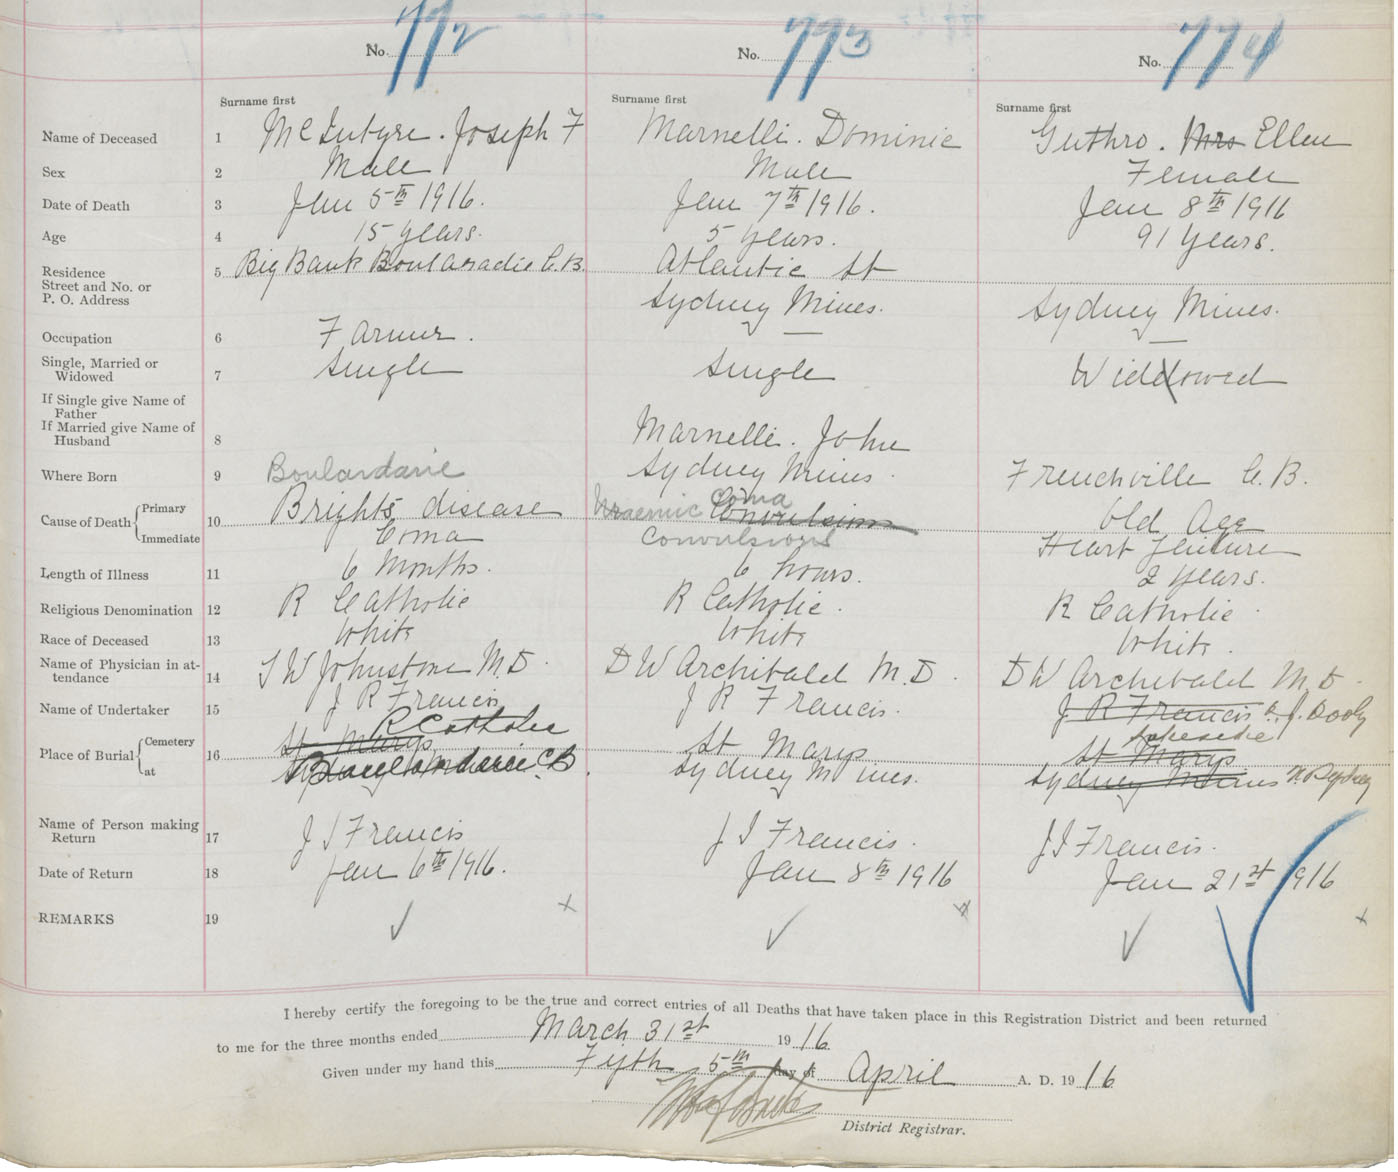 No. 772 No. 773 No. 774
Surname first Surname first Surname first
Name of Deceased 1 McIntyre. Joseph F Marnelli. Dominic Guthro. Mrs Ellen
Sex 2 Male Male Female
Date of Death 3 Jan 5th 1916. Jan 7th 1916. Jan 8th 1916
Age 4 15 years. 5 years. 91 years.
Residence 5 Big Bank Boularadie C.B. Atlantic St
Street and No. or
P. O. Address Sydney Mines. Sydney Mines.
Occupation 6 Farmer. — —
Single, Married or
Widowed 7 Single Single Widdowed
If Single give Name of
Father
If Married give Name of
Husband 8 Marnelli. John
Where Born 9 Boulardarie Sydney Mines. Frenchville C.B.
Cause of Death Primary 10 Brights disease Uraemic Coma Convulsions Old Age
Immediate Coma Convulsions Heart Failure
Length of Illness 11 6 Months. 6 hours. 2 years.
Religious Denomination 12 R Catholic R Catholic. R Catholic.
Race of Deceased 13 White White White.
Name of Physician in at-
tendance 14 T W Johnstone M.D. D W Archibald M.D. D W Archibald M.D.
Name of Undertaker 15 J R Francis J R Francis. J R Francis J. Dooly
Place of Burial Cemetery 16 St Marys R Catholic St Marys St Marys Lakeside
at Boulardarie C.B. Sydney Mines. Sydney Mines N. Sydney
Name of Person making
Return 17 J J Francis J J Francis. J J Francis.
Date of Return 18 Jan 6th 1916. Jan 8th 1916 Jan 21st 1916
REMARKS 19
I hereby certify the foregoing to be the true and correct entries of all Deaths that have taken place in this Registration District and been returned
to me for the three months ended March 31st 1916
Given under my hand this Fifth 5th day of April A. D. 1916
District Registrar.